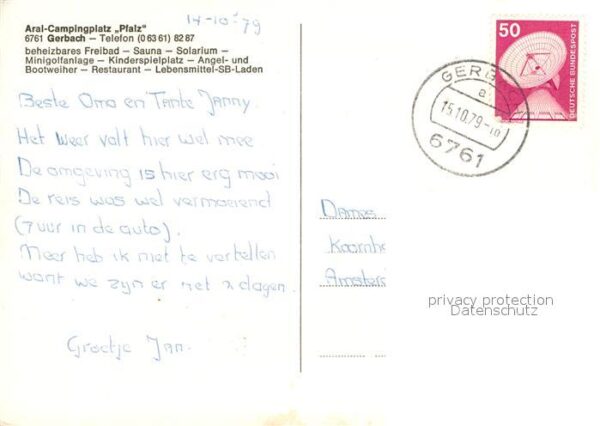 14-10-'79
Aral-Campingplatz „Pfalz"
6761 Gerbach – Telefon (0 63 61) 82 87
beheizbares Freibad – Sauna – Solarium –
Minigolfanlage – Kinderspielplatz – Angel- und
Bootweiher – Restaurant – Lebensmittel-SB-Laden
50
DEUTSCHE BUNDESPOST
GERB
a
15.10.79-10
6761
Beste Oma en Tante Janny.
Het weer valt hier wel mee
De omgeving is hier erg mooi
De reis was wel vermoeiend
(7 uur in de auto).
Meer heb ik niet te vertellen
want we zijn er net 2 dagen.
Groetje Jan.
Dames
Koornh
Amster
privacy protection
Datenschutz